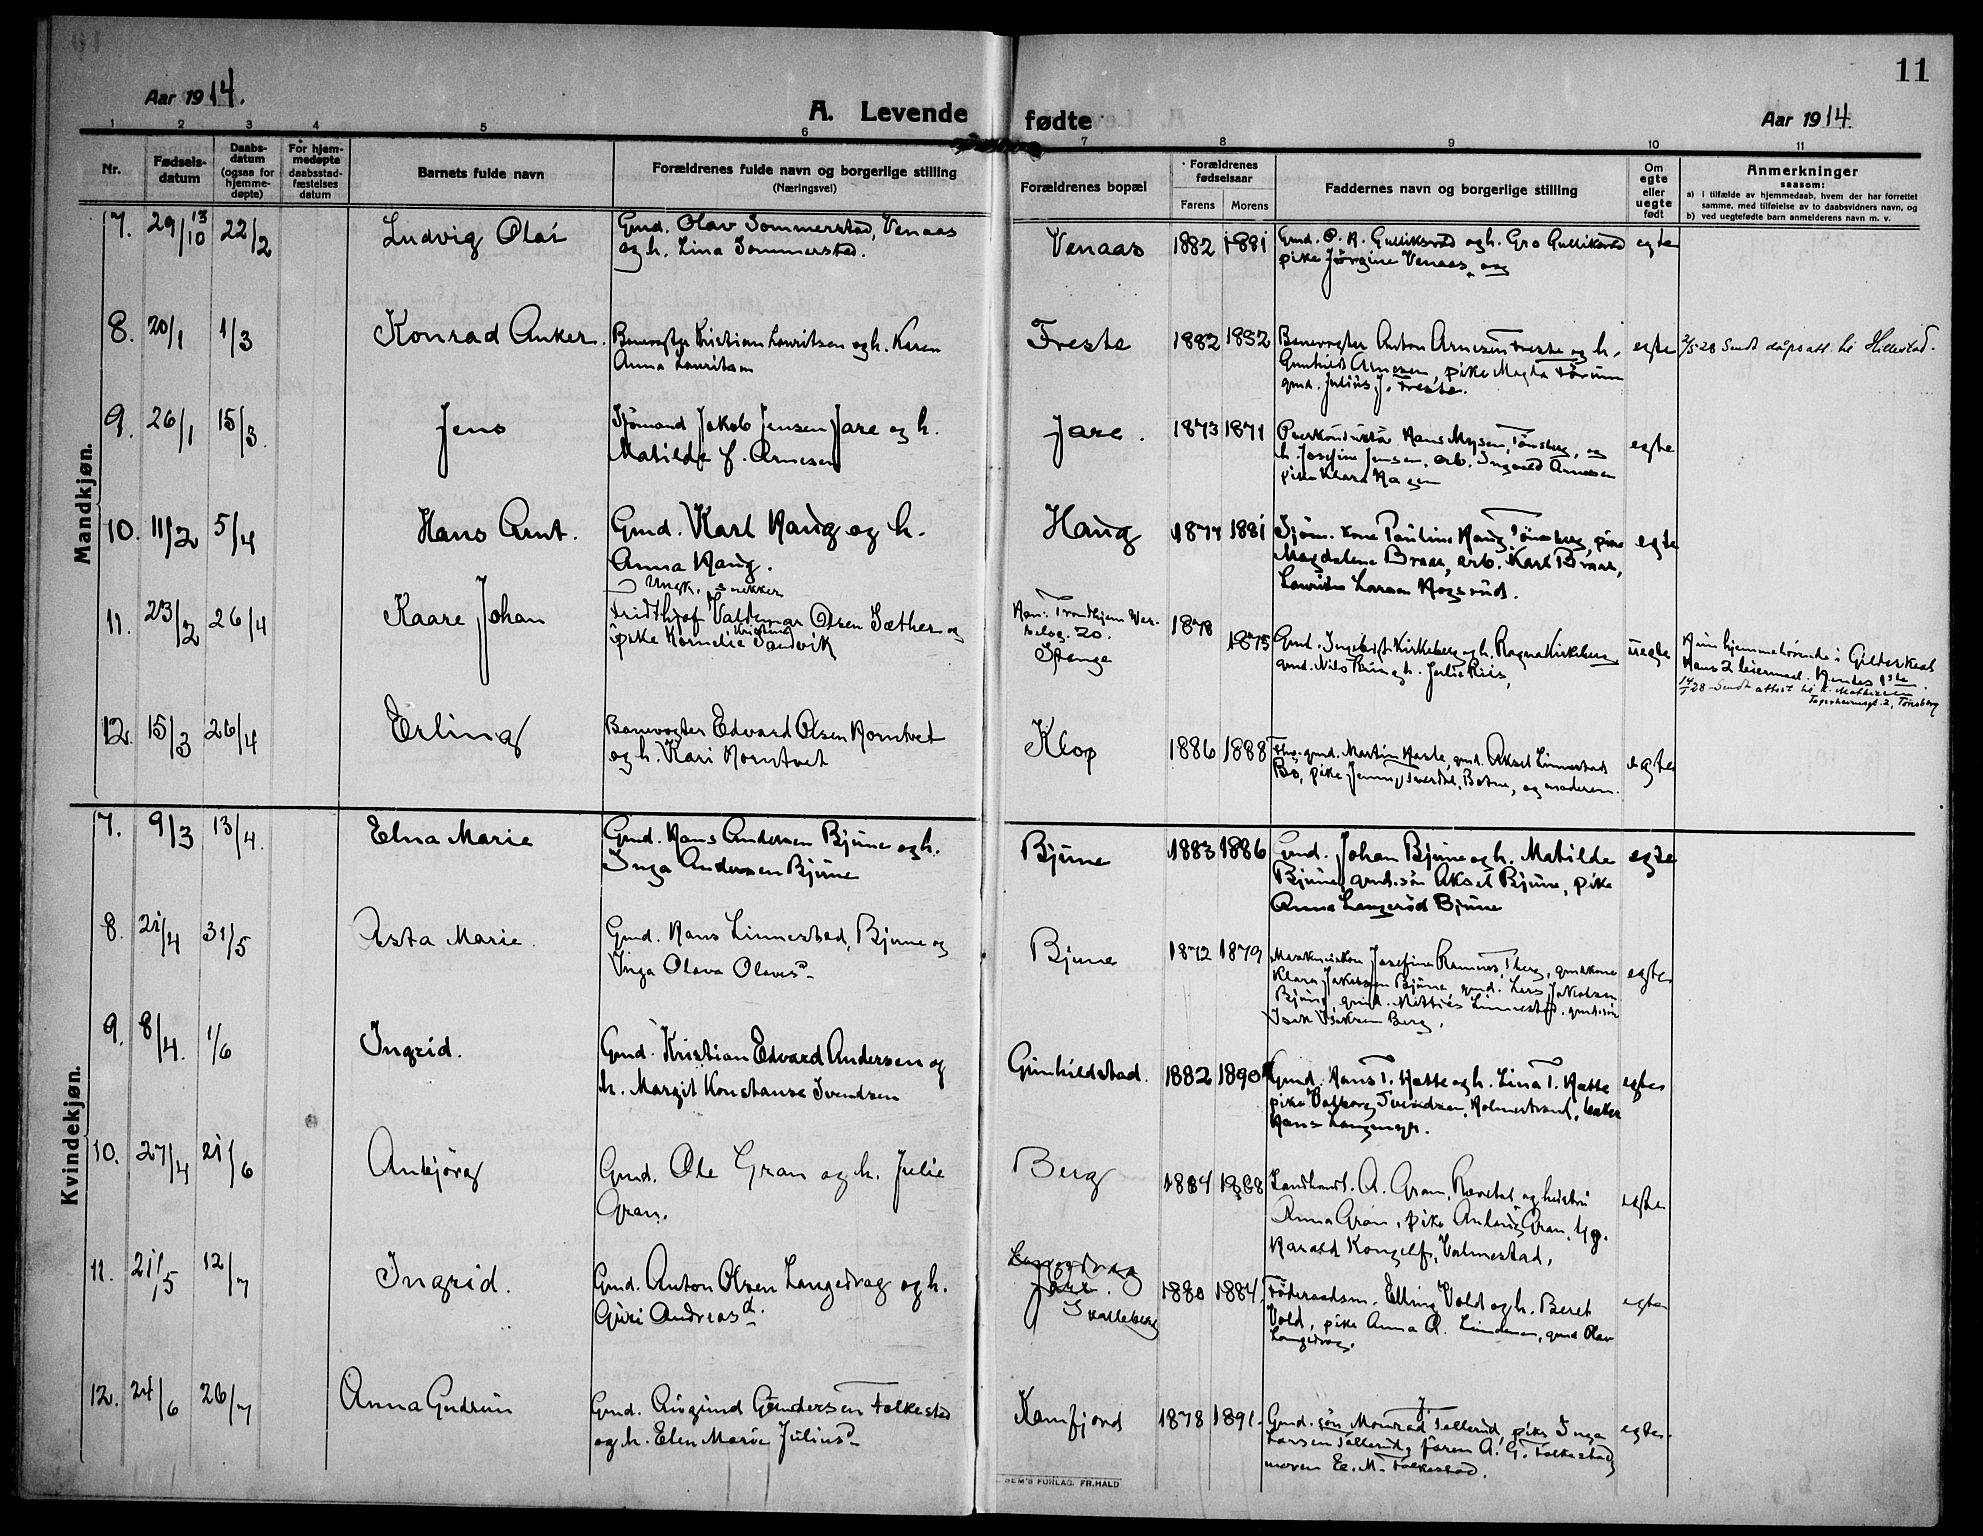 11
Aar 1914.
A. Levende fødte
Aar 1914.
1 2 3 4 5 6 7 8 9 10 11
Nr.
Fødsels-
datum
Daabs-
datum
(ogsaa for
hjemme-
døpte)
For hjem-
medøpte
daabsstad-
fæstelses
datum
Barnets fulde navn
Forældrenes fulde navn og borgerlige stilling
(Næringsvei)
Forældrenes bopæl
Forældrenes
fødselsaar
Farens Morens
Faddernes navn og borgerlige stilling
Om
egte
eller
uegte
født
Anmerkninger
saasom:
a) i tilfælde av hjemmedaab, hvem der har forrettet
samme, med tilføielse av to daabsvidners navn, og
b) ved uegtefødte barn anmelderens navn m. v.
Mandkjøn.
7. 29/10 13 22/2 Ludvig Olai
Gmd. Olav Sommerstad, Venaas
og h. Lina Sommerstad.
Venaas 1882 1881
Gmd. O. A. Gulliksrød og h. Gro Gulliksrød
pike Jörgine Venaas
egte
8. 20/1 1/3 Konrad Anker.
Banevogter Kristian Lauritsen og h. Karen
Anna Lauritsen
Freste 1882 1882
Banevogter Anton Arnesen Freste og h.
Gunhild Arnesen, pike Magda
gmd. Julius J. Freste.
egte
2/5 28 Sendt dåpsatt. til Hillestad.
9. 26/1 15/3. Jens
Sjømand Jakob Jensen Jare og h.
Matilde f. Arnesen
Jare. 1873 1871
Hans Mysen, Tønsberg, og
h. Josefine Jensen, arb. Ingvald Arnesen
pike Klara Hagen
egte
10. 11/2 5/4 Hans Arnt.
Gmd. Karl Haug og h.
Anna Haug.
Haug 1877 1881
Sjöm. kone Pauline Haug Tönsberg, pike
Magdalene Braar, arb. Karl Braar,
Lauritz Larsen
egte
11. 23/2 26/4 Kaare Johan
Ungk. snekker
Fridthjof Valdemar Olsen Sæther og
pike Kornelie Kristine Sandvik
Han: Trondhjem
20.
Stange
1878
1875
Gmd. Ingebrigt Kirkeberg og h. Ragna Kirkeberg
gmd. Nils Riis og h. Julie Riis,
uegte
Hun hjemmehörende i Gildeskaal
Hans 2 leiermaal. Hendes 1ste.
14/1 28 Sendt attest til K. Mathisen
2, Tønsberg
12. 15/3 26/4 Erling
Banevogter Edvard Olsen Horntvet
og h. Kari Horntvet
Klop 1886 1888
gmd. Martin Haale, gmd. Aksel Linnestad
Bo, pike Jenny Sverdal, Botne, og moderen.
egte
Kvindekjøn.
7. 9/3 13/4. Elna Marie
Gmd. Hans Andersen Bjune og h.
Inga Andersen Bjune
Bjune 1883 1886
Gmd. Johan Bjune og h. Matilde
Bjune, gmd.sön Aksel Bjune, pike
Anna Langeröd Bjune
egte
8. 21/4 31/5 Asta Marie.
Gmd. Hans Linnestad, Bjune og
Inga Olava Olavsd.
Bjune 1872 1879
Josefine Ramnes, Tbg., gmd.kone
Klara Jakobsen Bjune, gmd. Lars Jakobsen
Bjune, gmd. Mathias Linnestad, gmd.sön
Isak Isaksen Berg.
egte
9. 8/4. 1/6 Ingrid.
Gmd. Kristian Edvard Andersen og
h. Margit Konstanse Svendsen
Gunhildstad. 1882 1890
Gmd. Hans T. Hotte og h. Lina T. Hotte
pike Valborg Svendsen, Holmestrand, baker
Hans Langmyr.
egte
10. 27/4 21/6 Anbjörg
Gmd. Ole Gran og h. Julie
Gran.
Berg 1884 1888
Landhandl. A. Gran, Revetal og hustru
Anna Gran, pike Antonie Gran,
Harald Kongelf, Valmestad,
egte
11. 21/5 12/7 Ingrid.
Gmd. Anton Olsen Langedrag og h.
Guri Andreasd.
Langedrag
Jare.
Skalleberg
1880 1884.
Föderaadsm. Elling Vold og h. Beret
Vold, pike Anna A. Lindemo, gmd Olav
Langedrag.
egte
12. 24/6 26/7 Anna Gudrun
Gmd. Augund Gundersen Folkestad
og h. Elen Marie Juliusd.
Kamfjord 1878 1891.
Gmd. sön Monrad J. Tallerud, pike Inga
Larsen Tallerud, faren A. G. Folkestad
moren E. M. Folkestad.
egte.
SEM'S FORLAG. FR. HALD